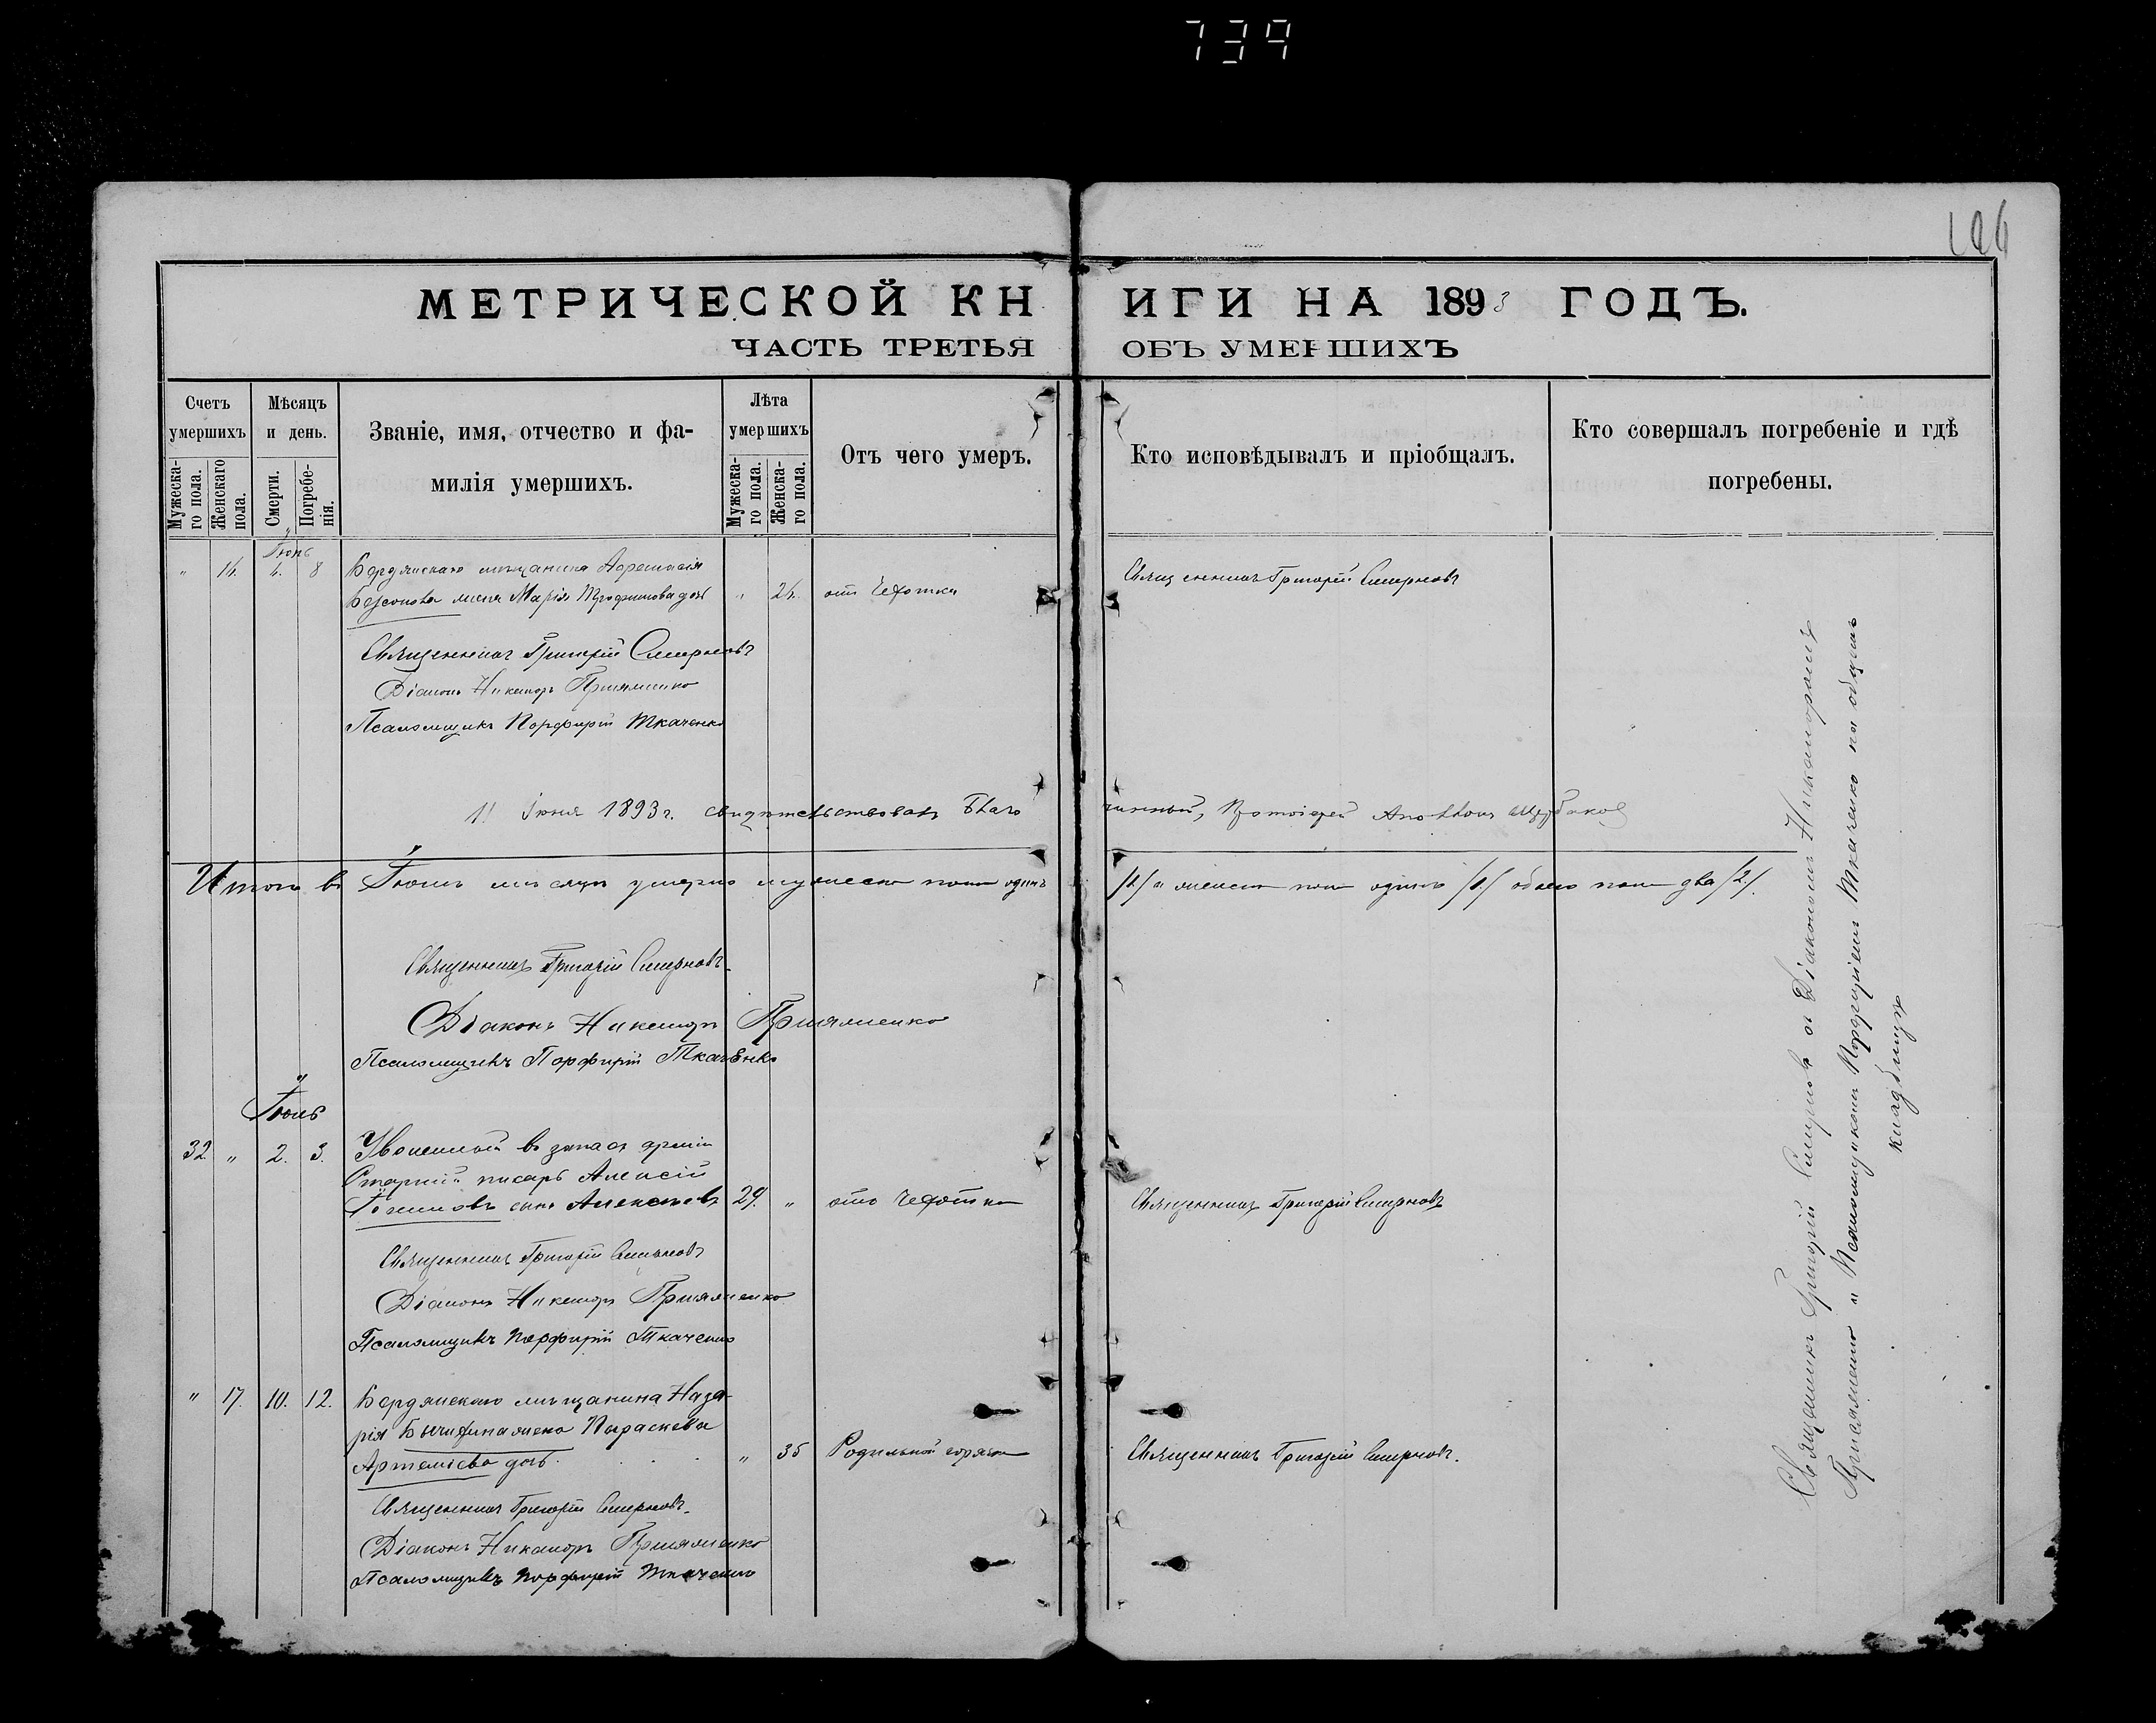 739
106
МЕТРИЧЕСКОЙ КНИГИ НА 1893 ГОДЪ.
ЧАСТЬ ТРЕТЬЯ ОБЪ УМЕРШИХЪ
Счетъ умершихъ
Мужескаго пола.
Женскаго пола.
Мѣсяцъ и день.
Смерти.
Погребенія.
Званіе, имя, отчество и фамилія умершихъ.
Лѣта умершихъ
Мужескаго пола.
Женскаго пола.
Отъ чего умеръ.
Кто исповѣдывалъ и пріобщалъ.
Кто совершалъ погребеніе и гдѣ погребены.
Іюнь
" 16. 4. 8 Бердянскаго мѣщанина
жена Марія Трофимова дочь " 24. отъ Чехотки Священникъ Григорій Смирновъ
Священникъ Григорій Смирновъ
Діаконъ Никаноръ
Псаломщикъ Порфирій Ткаченко
11 Іюня 1893 г. свидѣтельствовалъ Благочинный, Протоіерей
Итого въ Іюнѣ мѣсяцѣ умерло мужеска пола одинъ /1/ а женска пола одинъ /1/ обоего пола два /2/.
Священникъ Григорій Смирновъ
Діаконъ Никаноръ
Псаломщикъ Порфирій Ткаченко
Іюль
32 " 2. 3. Уволенный въ запасъ арміи
Старшій писарь Алексій
сынъ Алексѣевъ 29. " отъ Чехотки Священникъ Григорій Смирновъ
Священникъ Григорій Смирновъ
Діаконъ Никаноръ
Псаломщикъ Порфирій Ткаченко
" 17. 10. 12. Бердянскаго мѣщанина Наза-
рія жена Параскева
Артеміева дочь. " 35 Родильной горячки Священникъ Григорій Смирновъ.
Священникъ Григорій Смирновъ
Діаконъ Никаноръ
Псаломщикъ Порфирій Ткаченко
Священникъ Григорій Смирновъ съ Діакономъ Никаноромъ
и Псаломщикомъ Порфиріемъ Ткаченко на общемъ
кладбищѣ